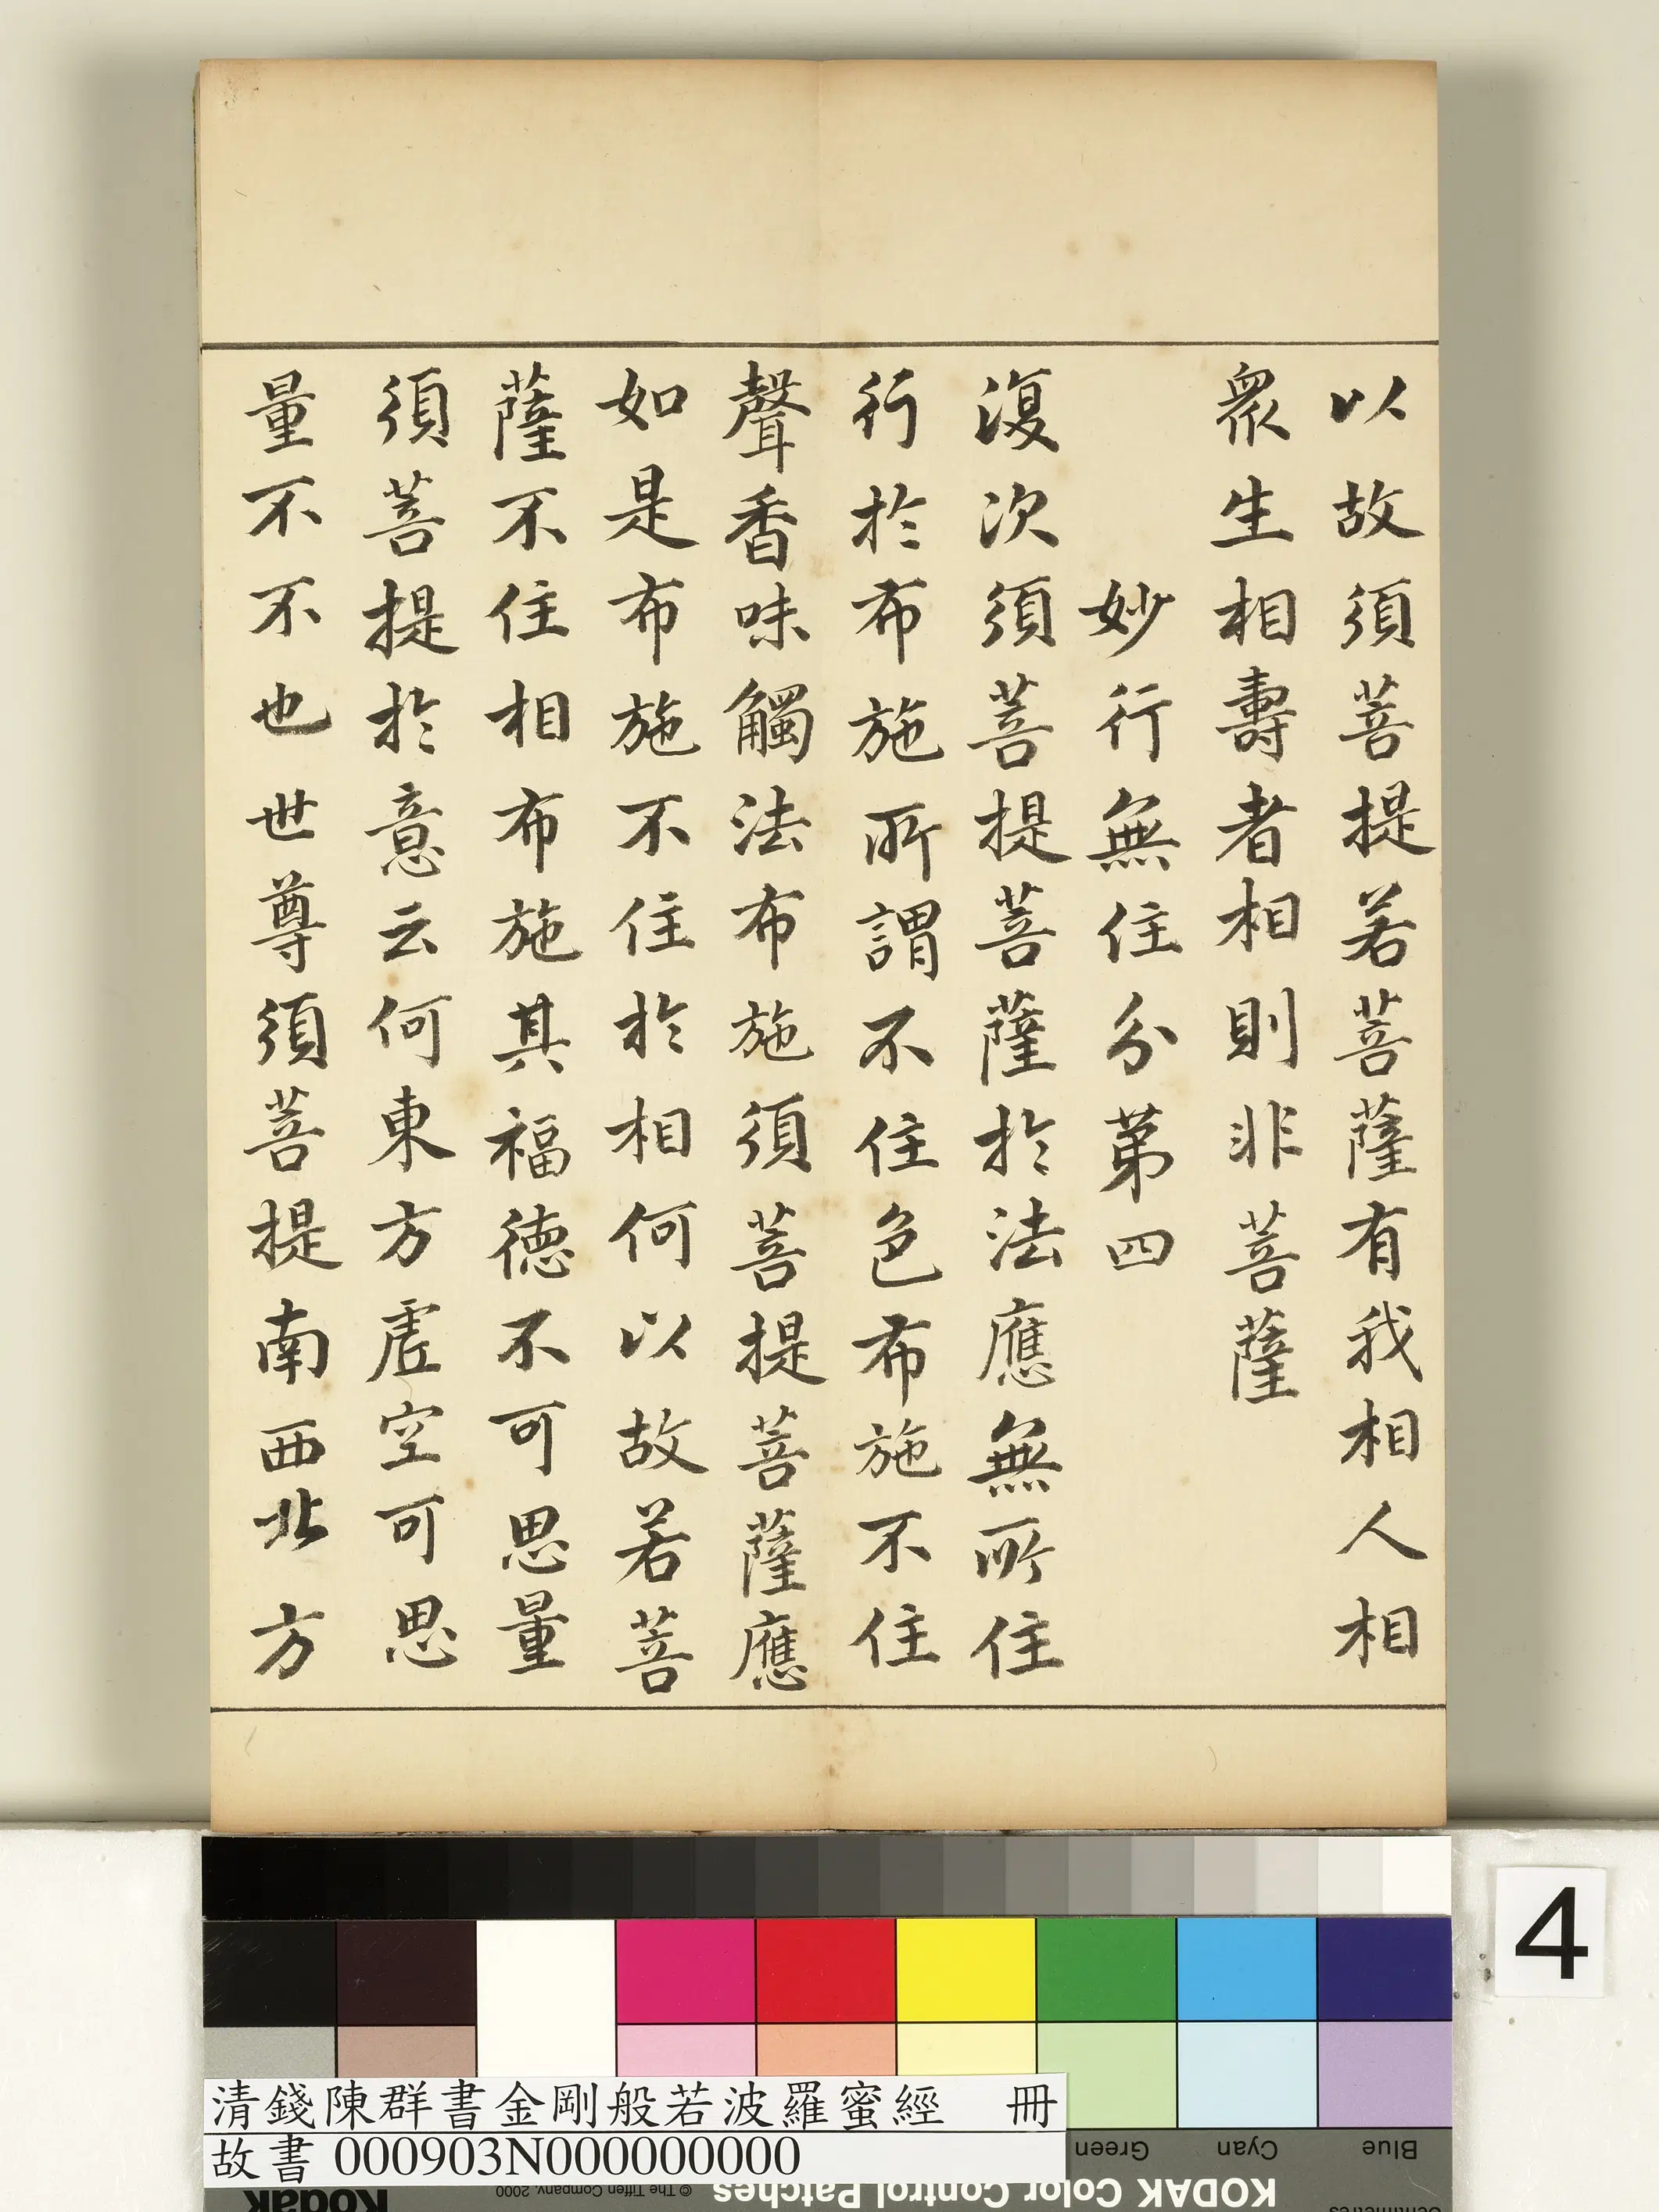 以故須菩提若菩薩有我相人相
眾生相壽者相則非菩薩
妙行無住分第四
復次須菩提菩薩於法應無所住
行於布施所謂不住色布施不住
聲香味觸法布施須菩提菩薩應
如是布施不住於相何以故若菩
薩不住相布施其福德不可思量
須菩提於意云何東方虛空可思
量不不也世尊須菩提南西北方
4
清錢陳群書金剛般若波羅蜜經 冊
故書 000903N000000000
Green
Cyan
Blue
Kodak
© The Tiffen Company, 2000
KODAK Color Control Patches